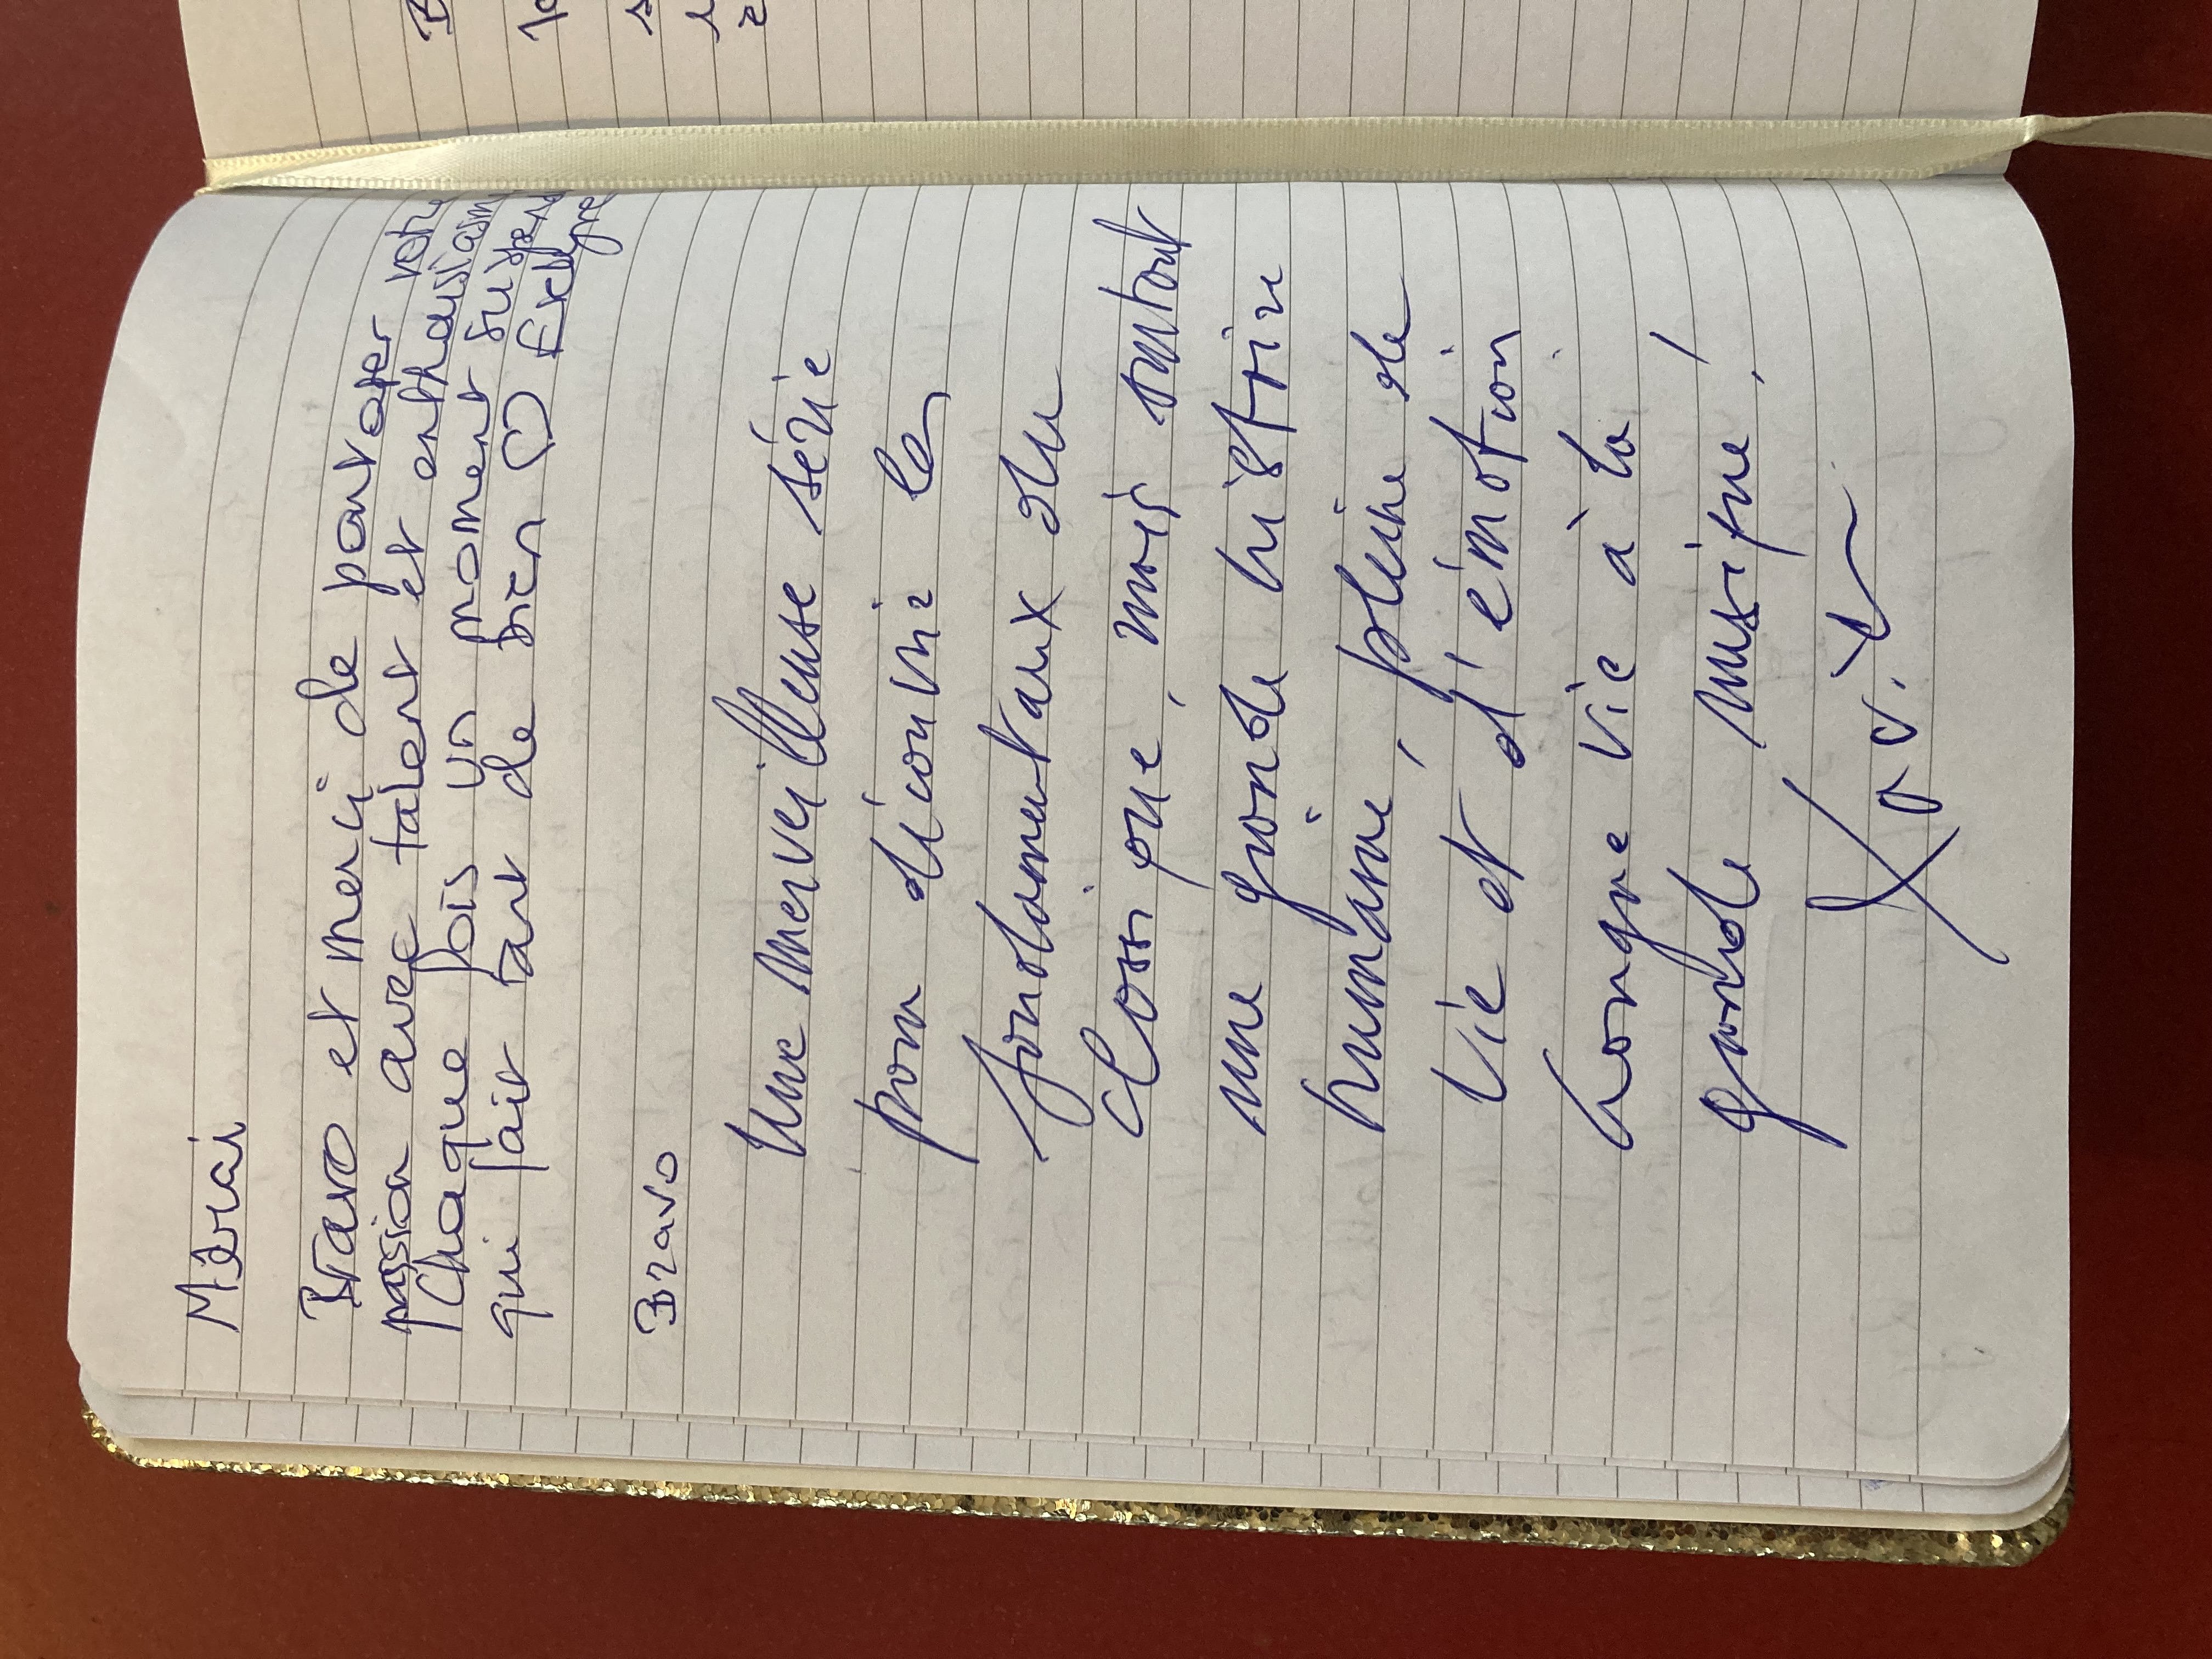 Merci
Bravo et merci de partager votre
passion avec talent et enthousiasm
Chaque fois un moment suspen
qui fait tant de bien ♡
Bravo
Une merveilleuse série
pour découvrir les
fondamentaux du
classique, mais surtout
une grande histoire
humaine, pleine de
vie et d'émotion
Longue vie à la
grande musique !